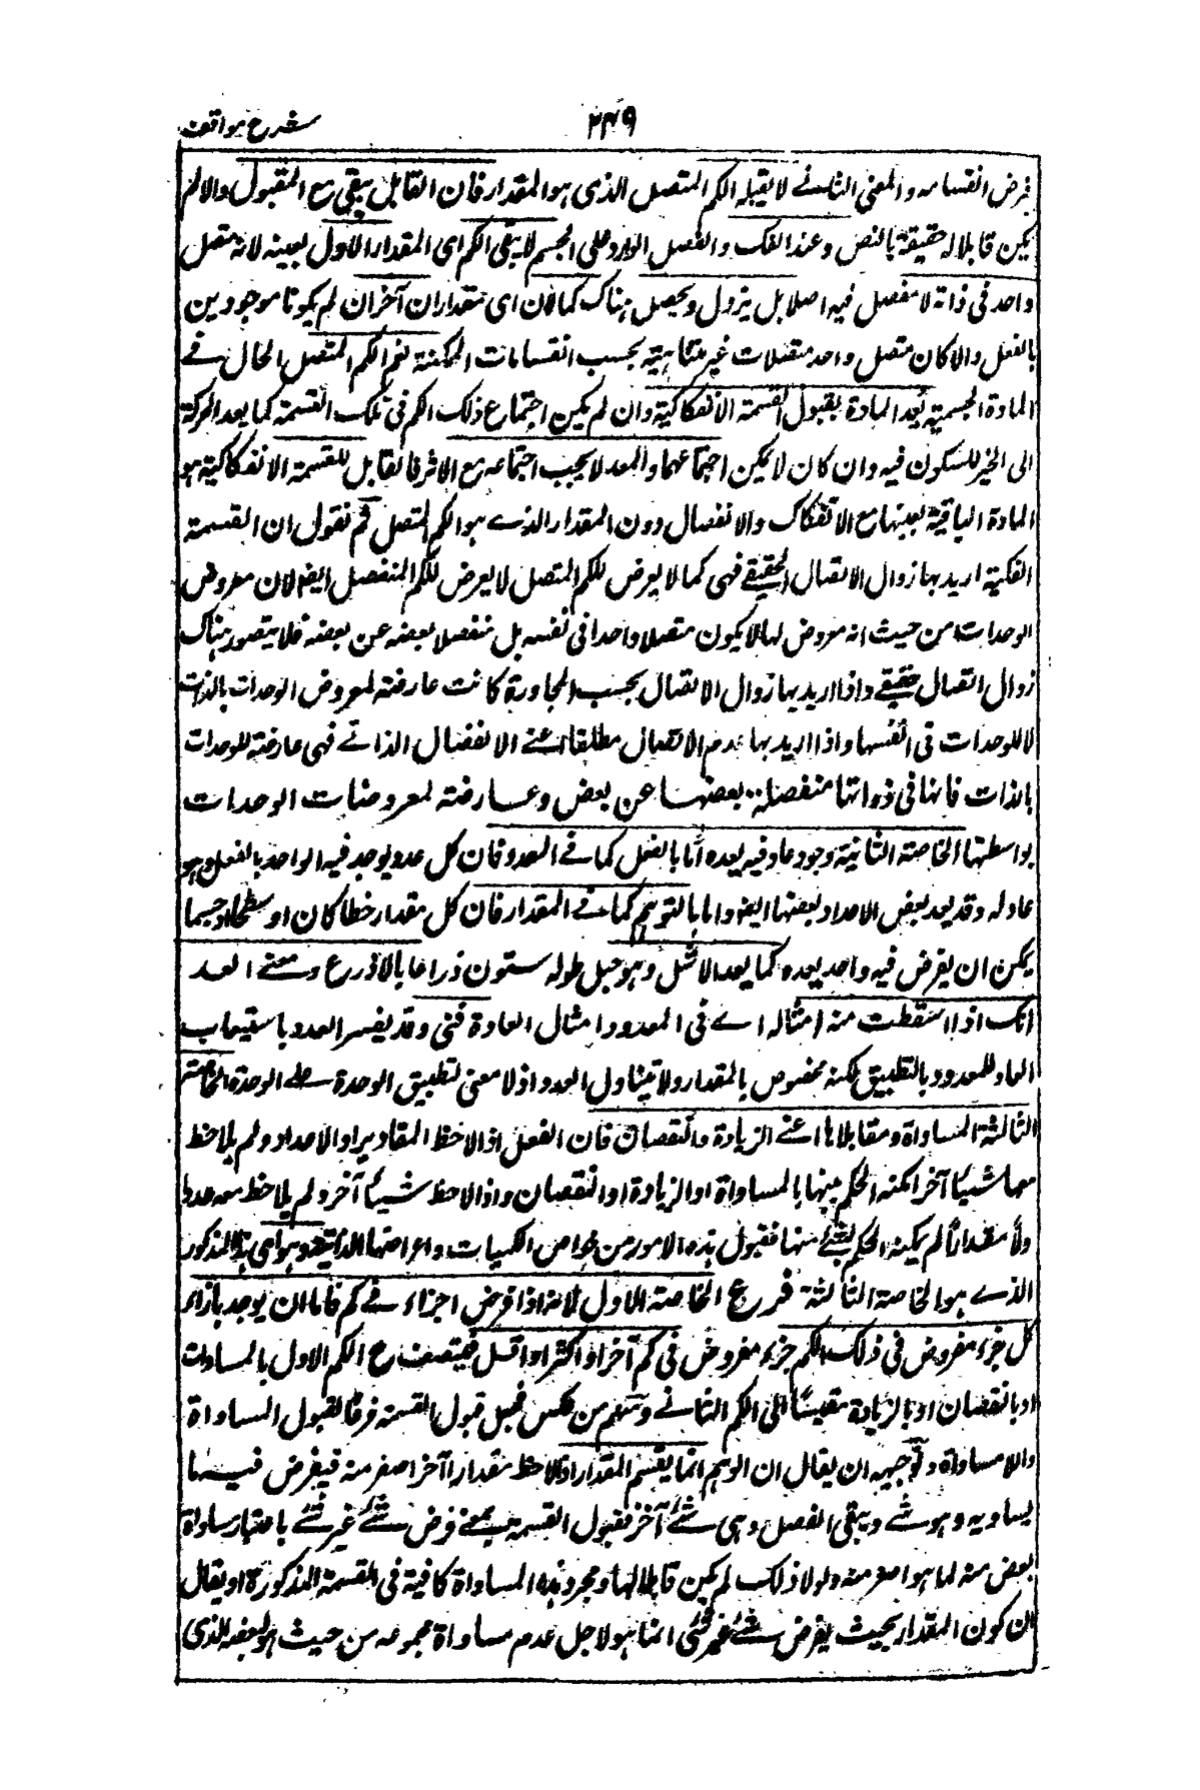 ۲۴۹ شرح مواقف
فرض انقسامه والمعنى الثانے لا يقبله الكم المتصل الذى هو المقدار فان القابل يبقى مع المقبول والا لم
يكن قابلا له حقيقة بالنص وعند الفك والفصل الوارد على الجسم لا يبقى الكم اى المقدار الاول بعينه لانه متصل
واحد فى ذاته لا مفصل فيه اصلا بل يزول ويحصل هناك كمان اى مقداران آخران لم يكونا موجودين
بالفعل والا كان متصل واحد متصلات غير متناهية بحسب انقسامات الممكنة نعم الكم المتصل الحال فے
المادة الجسمية يعد المادة بقبول القسمة الانفكاكية وان لم يكن اجتماع ذلك الكم فى تلك القسمة كما يعد الحركة
الى الخير للسكون فيه وان كان لا يمكن اجتماعهما والمعد لا يجب اجتماعه مع الاثر فالقابل للقسمة الانفكاكية هو
المادة الباقية بعينها مع الانفكاك والانفصال دون المقدار الذے هو الكم المتصل ثم نقول ان القسمة
الفكية اريد بها زوال الاتصال الحقيقے فهى كما لا يعرض للكم المتصل لا يعرض للكم المنفصل ايضا لان معروض
الوحدات من حيث انه معروض لها لا يكون متصلا واحدا فى نفسه بل منفصلا بعضه عن بعضه فلا يتصور هناك
زوال اتصال حقيقے واذا اريد بها زوال الاتصال بحسب المجاورة كانت عارضة لمعروض الوحدات بالذات
لا للوحدات فى انفسها واذا اريد بها عدم الاتصال مطلقا اعنے الانفصال الذاتے فهى عارضة للوحدات
بالذات فانها فى ذواتها منفصلة بعضها عن بعض وعارضة لمعروضات الوحدات
بواسطتها الخاصة الثانية وجود عاد فيه يعده اما بالفعل كما فے العدد فان كل عدد يوجد فيه الواحد بالفعل وهو
عاد له وقد يعد بعض الاعداد بعضها ايضا واما بالتوهم كما فے المقدار فان كل مقدار خطا كان او سطحا او جسما
يمكن ان يفرض فيه واحد يعده كما يعد الاشل وهو حبل طوله ستون ذراعا بالاذرع ومعنے العد
انك اذا اسقطت منه امثاله اے فى المعدود امثال العادة فنى وقد يفسر العدد باستيعاب
العاد للمعدود بالتطبيق لكنه مخصوص بالمقدار ولا يتناول العدد اذ لا معنى لتطبيق الوحدة على الوحدة الخاصة
الثالثة المساواة ومقابلاها اعنے الزيادة والنقصان فان العقل اذا لاحظ المقادير او الاعداد ولم يلاحظ
معها شيئا آخر امكنه الحكم بينها بالمساواة او الزيادة او النقصان واذا لاحظ شيئا آخر ولم يلاحظ معه عددا
ولا مقدارا لم يمكنه الحكم بشئے منها فقبول هذه الامور من خواص الكميات واعراضها الذاتية وهو اى هذا المذكور
الذے هو الخاصة الثالثة فرع الخاصة الاول لانه اذا فرض اجزاء فے كم فاما ان يوجد بازاء
كل جزء مفروض فى ذلك الكم جزء مفروض فى كم آخر او اكثر او اقل فيتصف الكم الاول بالمساوات
او بالنقصان او بالزيادة مقيسا الى الكم الثانے ومنهم من عكس فجعل قبول القسمة فرعا لقبول المساواة
واللامساواة وتوجيهه ان يقال ان الوهم انما يقسم المقدار اذا لاحظ مقدارا آخر اصغر منه فيفرض فيه ما
يساويه وهو شے ويبقى الفصل وهى شئے آخر فقبول القسمة بمعنے فرض شئے غير شئے باعتبار مساواة
بعض منه لما هو اصغر منه ولولا ذلك لم يكن قابلا لها ومجرد هذه المساواة كافية فى القسمة المذكورة او يقال
ان كون المقدار بحيث يفرض شئے غير شئى انما هو لاجل عدم مساواة مجموعه من حيث هو لبعضه الذى